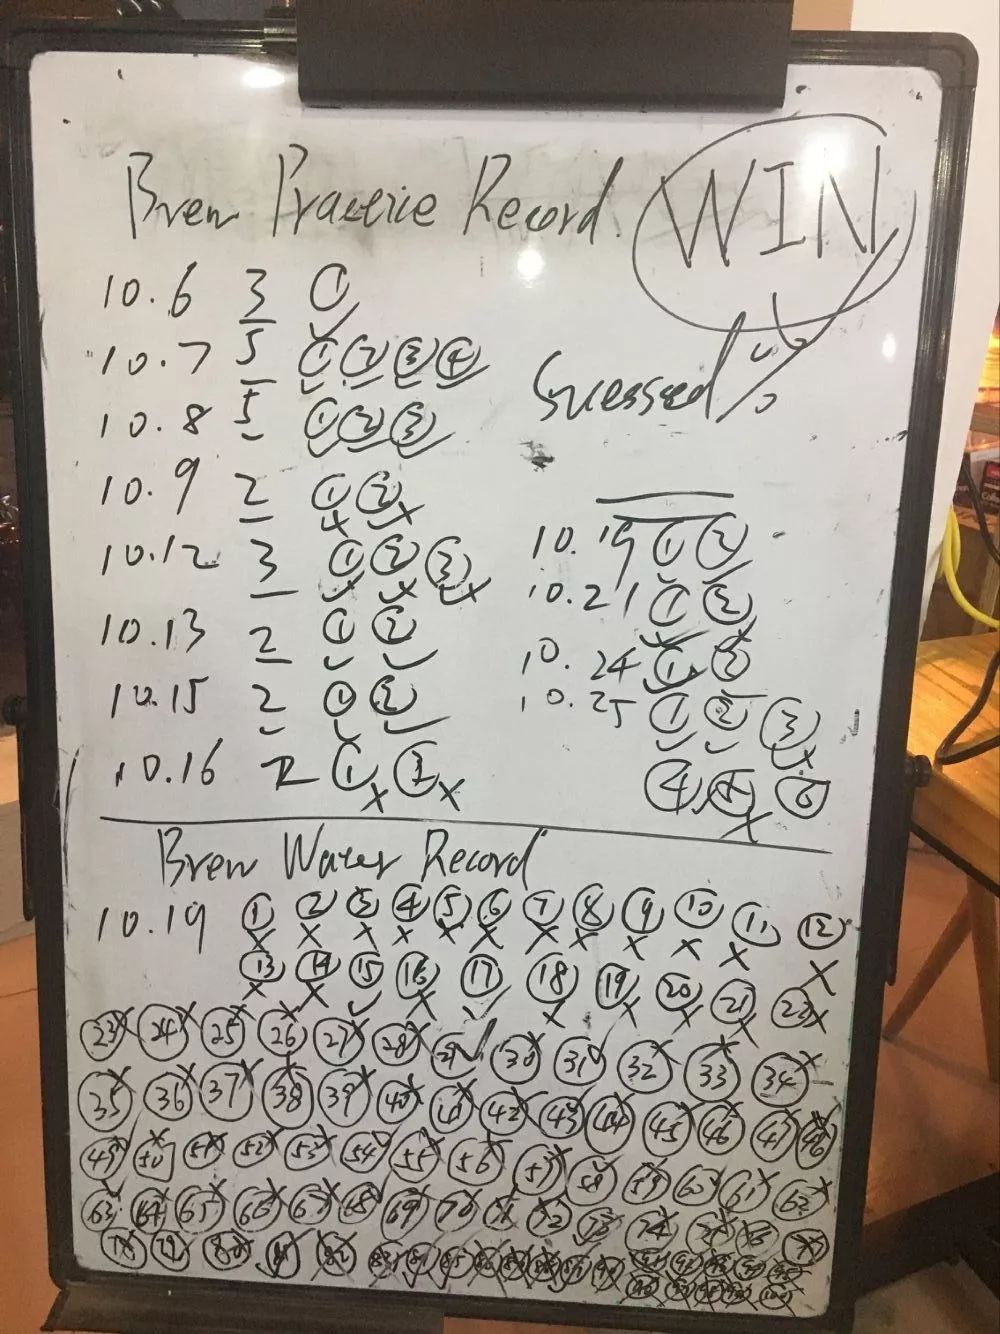 Brew Practice Record. WIN
Sucessed %
10.6 3 ①
10.7 5 ① ② ③ ④
10.8 5 ① ② ③
10.9 2 ① ②
10.12 3 ① ② ③
10.13 2 ① ②
10.15 2 ① ②
10.16 2 ① ②
10.19 ① ②
10.21 ① ②
10.24 ① ②
10.25 ① ② ③
④ ⑤ ⑥
Brew Water Record
10.19 ① ② ③ ④ ⑤ ⑥ ⑦ ⑧ ⑨ ⑩ ⑪ ⑫
⑬ ⑭ ⑮ ⑯ ⑰ ⑱ ⑲ ⑳ 21 22
23 24 25 26 27 28 29 30 31 32 33 34
35 36 37 38 39 40 41 42 43 44 45 46 47 48
49 50 51 52 53 54 55 56 57 58 59 60 61 62
63 64 65 66 67 68 69 70 71 72 73 74 75 76 77
78 79 80 81 82 83 84 85